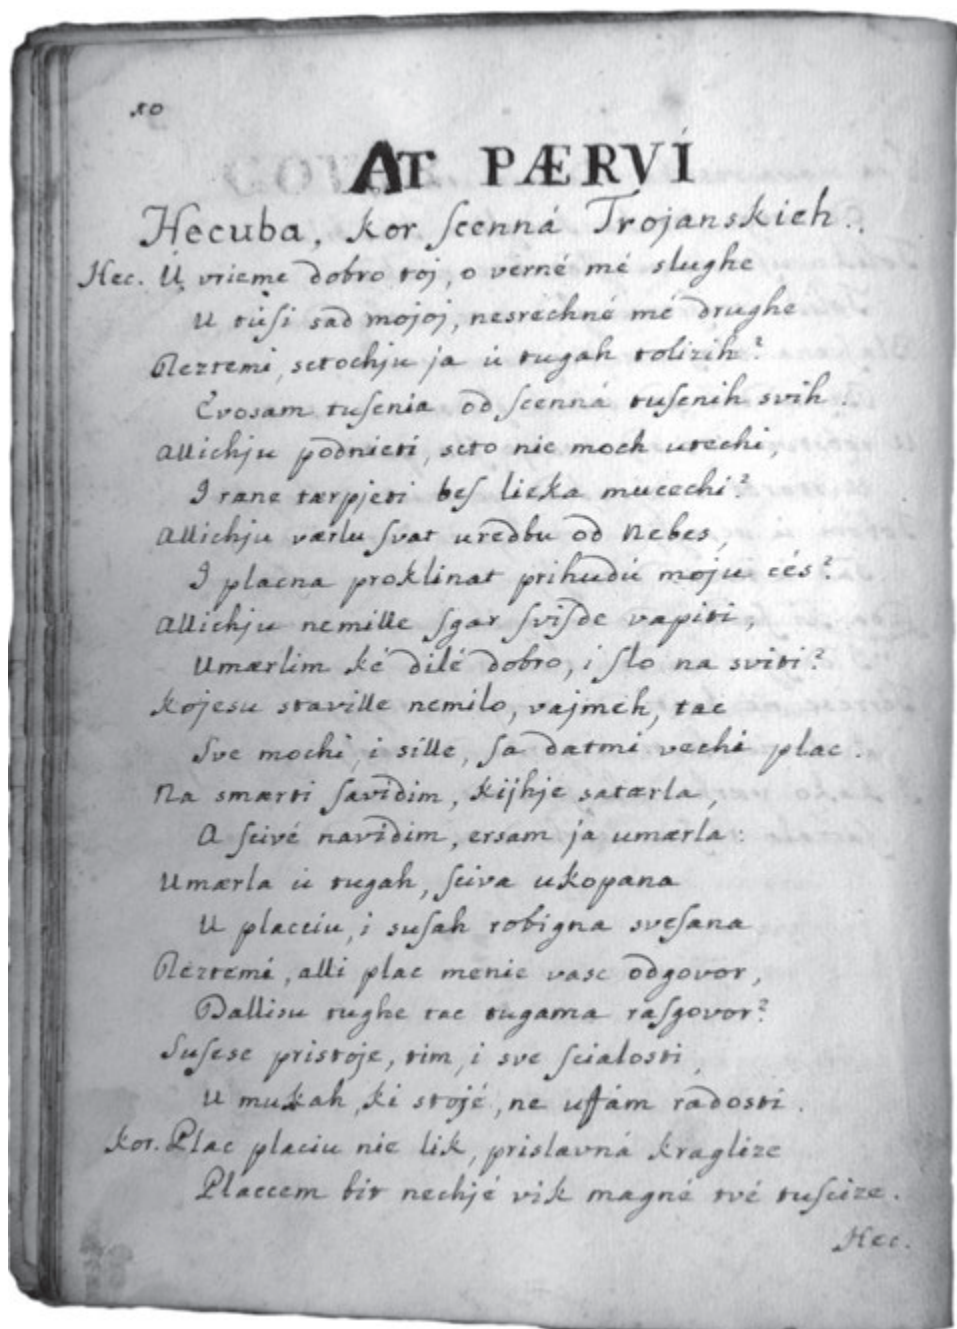 10
AT PÆRVI
Hecuba, kor scenná Trojanskieh.
Hec. U vrieme dobro toj, o verné mé slughe
U túſi sad mojoj, nesrechné mé drughe
Reztemi, sctochju ja ú tugah tolizih?
Evosam tuſenia od ſcenná tuſenih svih.
Allichju podnieti, scto nie moch utechi,
I rane tærpjeti beſ lieka mucechi?
Allichju værlu ſvat uredbu od Nebes,
I placna proklinat prihudú moju cés?
Allichju nemille ſgar ſviſde vapiti,
Umærlim ké dilé dobro, i ſlo na sviti?
Kojesu staville nemilo, vajmeh, tac
Sve mochi, i sille, ſa datmi vechi plac.
Na smærti ſavidim, kijhje satærla,
A ſcivé navidim, ersam ja umærla:
Umærla ú tugah, ſciva ukopana
U placciu, i suſah robigna sveſana
Réztemi, alli plac menie vasc odgovor,
Dallisu tughe tac tugama raſgovor?
Suſesc pristoje, tim, i sve ſcialosti,
U mukah, ki stojé, ne uffám radosti.
Kor. Plac placiu nie lik, prislavná kraglize
Placcem bit nechjé vik magné tvé tuſcize.
Hec.